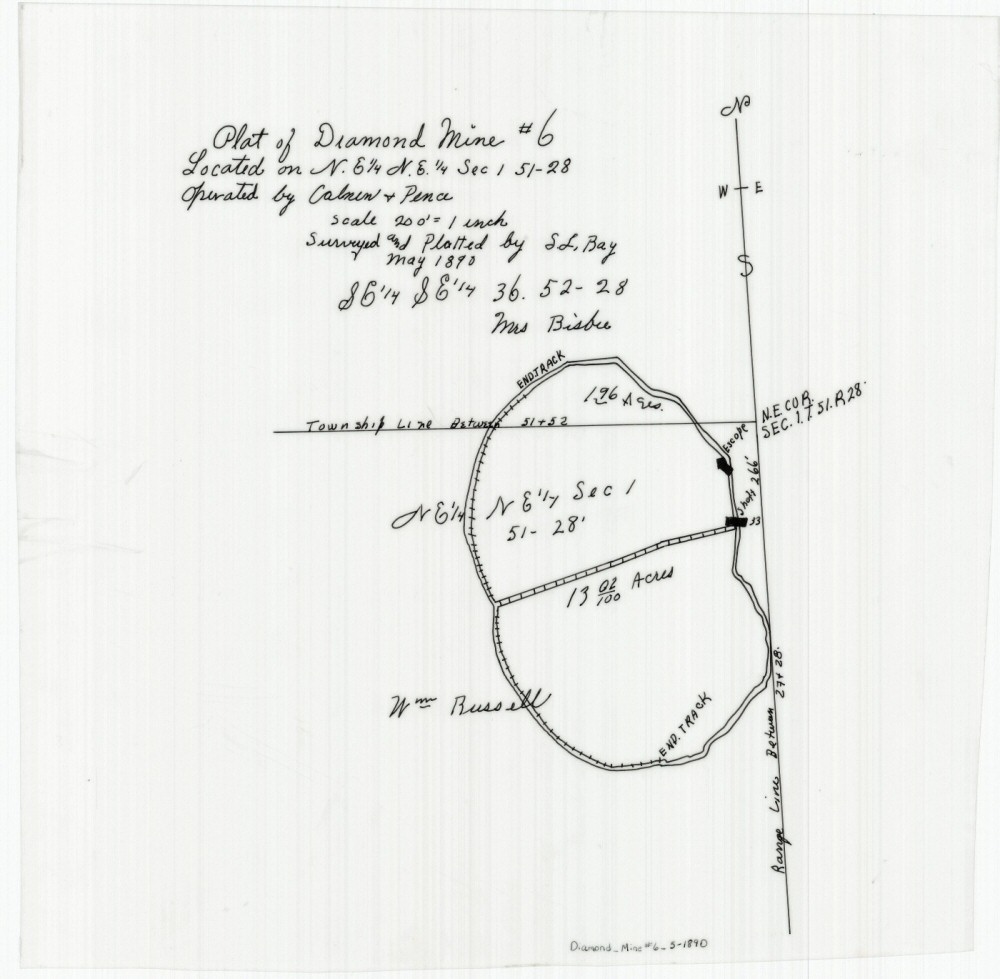 Plat of Diamond Mine #6
Located on N. E¼ N.E.¼ Sec 1 51-28
Operated by & Pence
Scale 200' = 1 inch
Surveyed and Platted by S.L. Bay
May 1890
SE¼ SE¼ 36. 52-28
Mrs Bisbee
N
W E
S
END TRACK
1.96 Acres.
Township Line Between 51+52
N.E COR.
SEC. 1. T. 51. R. 28.
Escape
266'
Shaft
33
NE¼ NE¼ Sec 1
51-28'
13 02/100 Acres
Wm Russell
END. TRACK
Range Line Between 27+28.
Diamond_Mine#6_5-1890